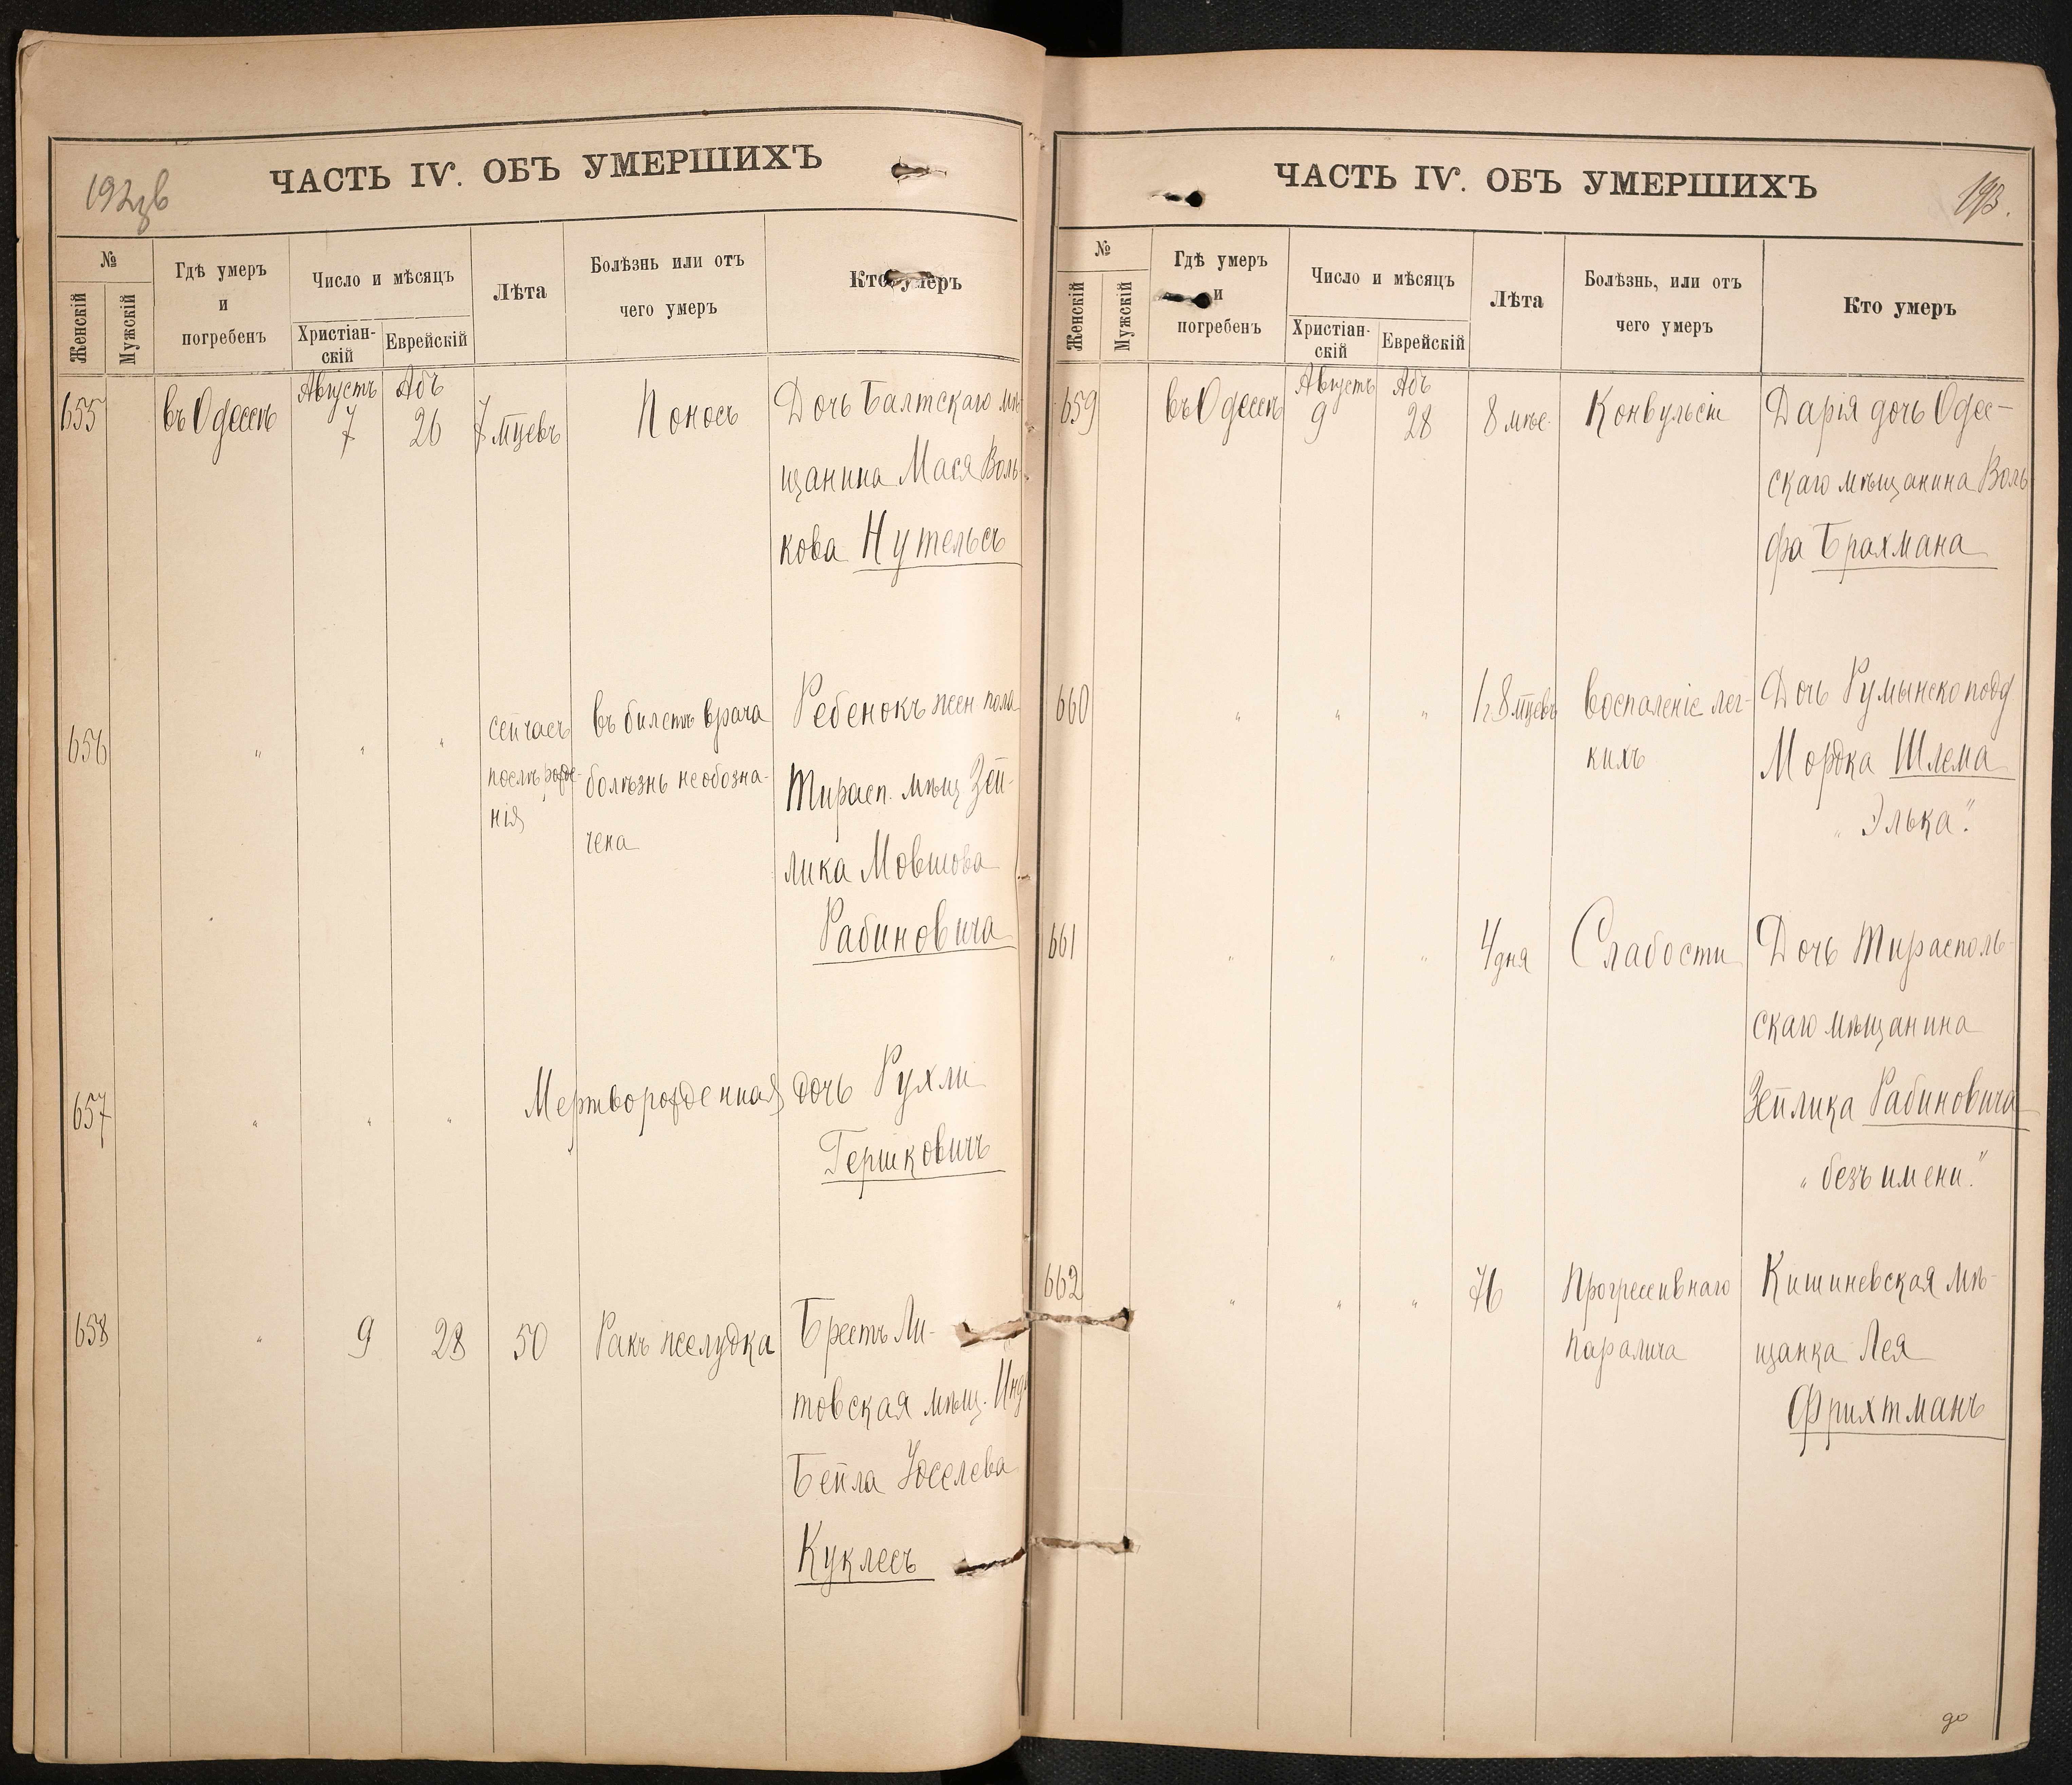 192 об
ЧАСТЬ IV. ОБЪ УМЕРШИХЪ
№
Женскій
Мужскій
Гдѣ умеръ
и
погребенъ
Число и мѣсяцъ
Христіан-
скій
Еврейскій
Лѣта
Болѣзнь или отъ
чего умеръ
Кто умеръ
655
въ Одессѣ
Августъ
7
Абъ
26
7 мцевъ
Поносъ
Дочь Балтскаго мѣ-
щанина Мася Воль-
кова Нутельсъ
656
"
"
"
сейчасъ
послѣ рожде-
нія
въ билетѣ врача
болѣзнь необозна-
чена
Ребенокъ жен. пола
Тирасп. мѣщ Зей-
лика Мовшова
Рабиновича
657
"
"
"
Мертворожденная
дочь Рухли
Гершковичъ
658
"
9
28
50
Ракъ желудка
Брестъ Ли-
товская мѣщ.
Бейла Іоселева
Куклесъ
ЧАСТЬ IV. ОБЪ УМЕРШИХЪ
193.
№
Женскій
Мужскій
Гдѣ умеръ
и
погребенъ
Число и мѣсяцъ
Христіан-
скій
Еврейскій
Лѣта
Болѣзнь, или отъ
чего умеръ
Кто умеръ
659
въ Одессѣ
Августъ
9
Абъ
28
8 мѣс.
Конвульсіи
Дарія дочь Одес-
скаго мѣщанина Воль
фа Брахмана
660
"
"
"
1 г. 8 мцевъ
Воспаленіе лег-
кихъ
Дочь Румынско подд
Мордка Шлема
„Элька"
661
"
"
"
4 дня
Слабости
Дочь Тирасполь-
скаго мѣщанина
Зейлика Рабиновича
„безъ имени"
662
"
"
"
76
Прогрессивнаго
паралича
Кишиневская мѣ-
щанка Лея
Фрихтманъ
до